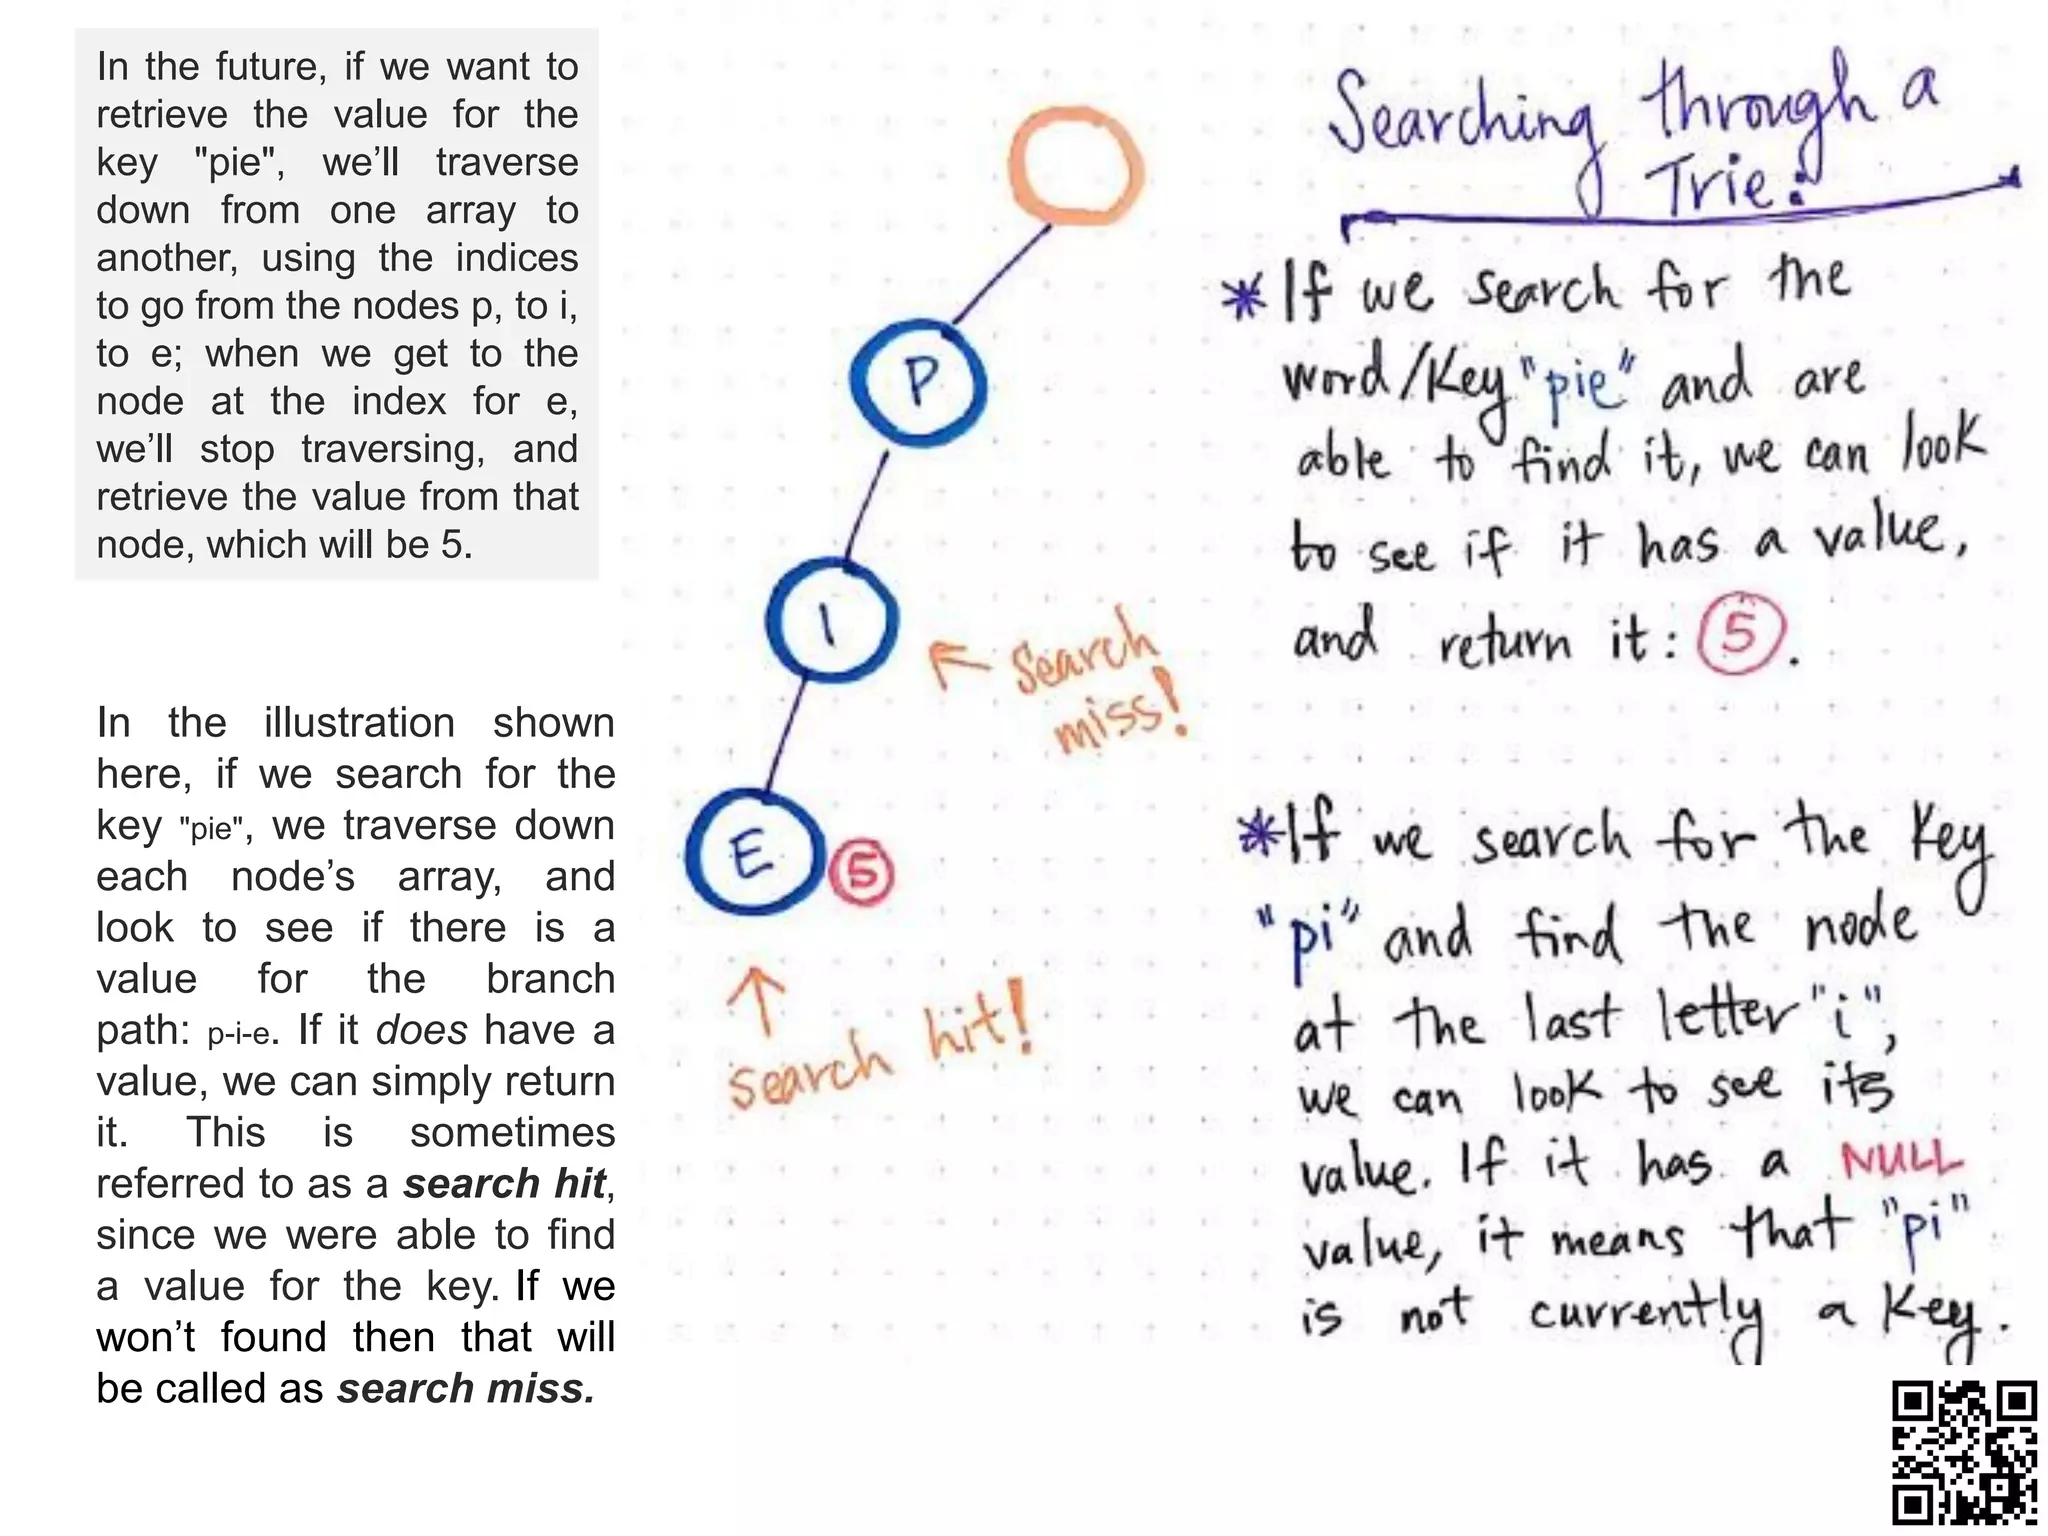 In the future, if we want to
retrieve the value for the
key "pie", we’ll traverse
down from one array to
another, using the indices
to go from the nodes p, to i,
to e; when we get to the
node at the index for e,
we’ll stop traversing, and
retrieve the value from that
node, which will be 5.
In the illustration shown
here, if we search for the
key "pie", we traverse down
each node’s array, and
look to see if there is a
value for the branch
path: p-i-e. If it does have a
value, we can simply return
it. This is sometimes
referred to as a search hit,
since we were able to find
a value for the key. If we
won’t found then that will
be called as search miss.
P
I
E
5
search
miss!
search hit!
Searching through a
Trie:
*If we search for the
word/key "pie" and are
able to find it, we can look
to see if it has a value,
and return it: 5.
*If we search for the key
"pi" and find the node
at the last letter "i",
we can look to see its
value. If it has a NULL
value, it means that "pi"
is not currently a key.